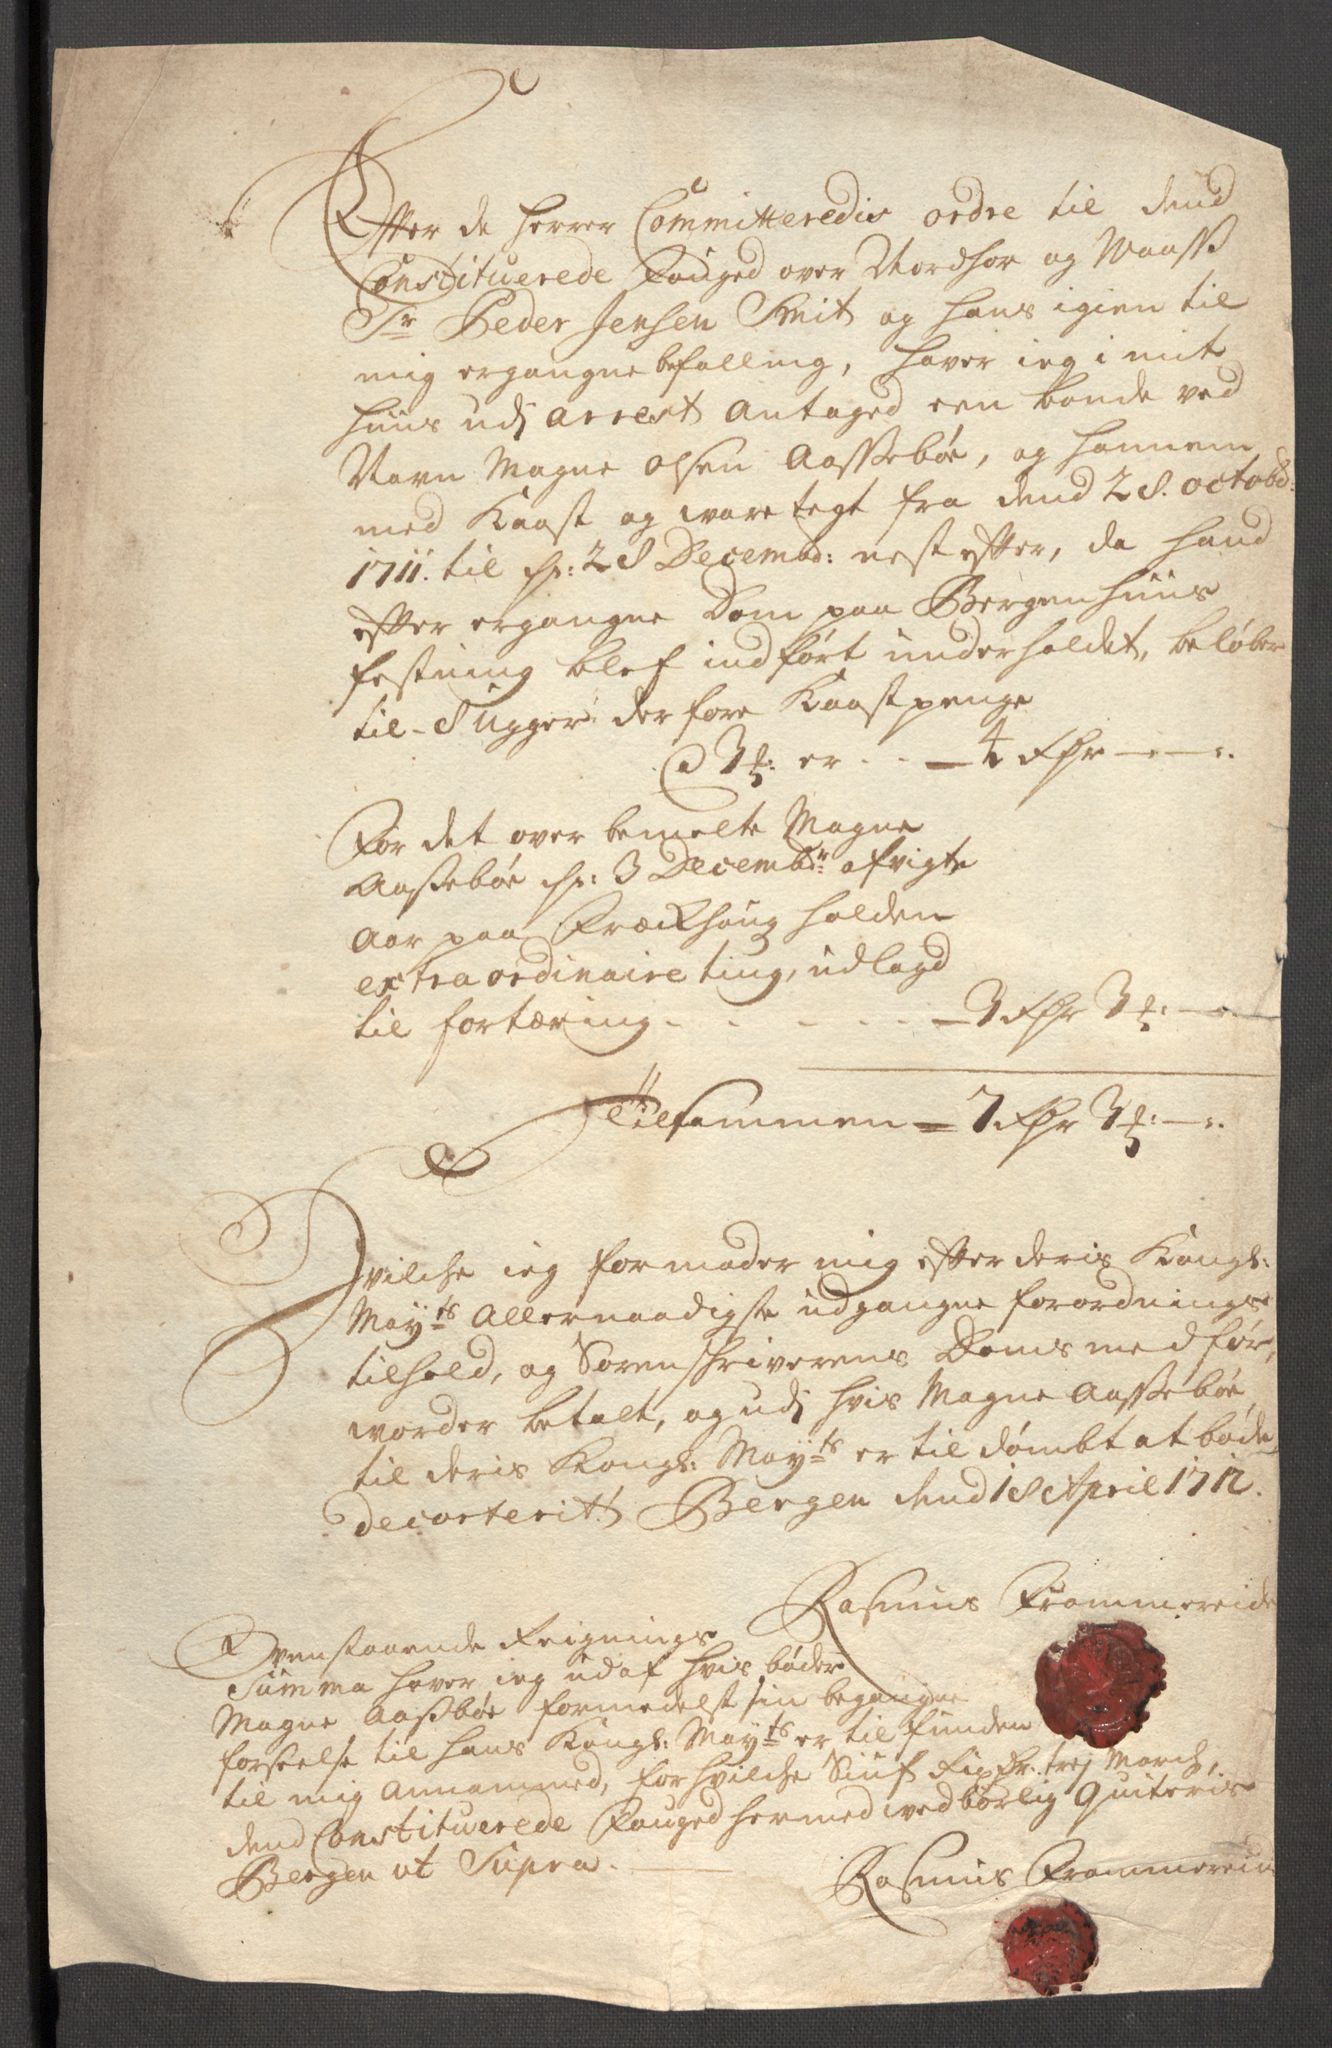 Effter de herrer Committeredis ordre til dend
Constituerede Fouged over Nordhor og Waass
Sr Peder Jensen Smit og hans igien til
mig ergangne befalling, haver ieg i mit
huus udj arrest antaged een bonde ved
Navn Magne Olsen Aassebøe, og hannem
med Kaast og waretegt fra dend 28. octobr:
1711. til dn: 28 Decembr: nest effter, da hand
effter ergangne Dom paa Bergenhuus
festning blef indført underholdet, beløber
til 8 Uger: derfore Kaastpenge
a 3 : er - - 4 Rdr
For det over bemelte Magne
Aassebøe dn: 3 Decembr: afvigte
Aar paa Fræckhoug holden
extraordinaire ting, udlagd
til fortæring - - - - - 3 Rdr 3 :
Tilsammen = 7 Rdr 3 :
Hvilche ieg formoder mig effter deris Kongl:
Mayts Allernaadigste udgangne forordnings
tilhold, og Sorenschriverens Doms medfør,
worder betalt, og udj hvis Magne Aassebøe
til deris Kongl: Mayts er til dømbt at bøde
decorterit. Bergen dend 18 April 1712.
Rasmus Frommereide
Ovenstaaende Reignings
Summa haver ieg udaf hvis bøder
Magne Aassbøe formedelst sin begangne
forseelse til hans Kongl: Mayts er til funden
til mig annammed, forhvilche Siuf trej March,
dend Constituerede Fouged hermed wedbørlig Quiteris
Bergen ut Supra.
Rasmus Frommereide